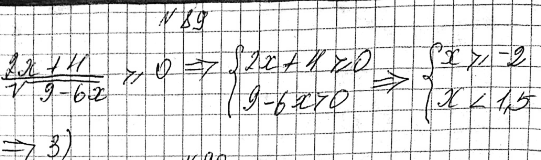 № 89
(2x+4)/√(9-6x) ⩾ 0 ⇒ { 2x+4 ⩾ 0 ; 9-6x>0 ⇒ { x ⩾ -2 ; x < 1,5
⇒ 3)